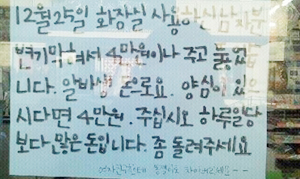 12월25일 화장실 사용하신 남자분
변기막혀서 4만원이나 주고 뚫었
니다. 알바생 은로요. 양심이 있으
시다면 4만원. 주십시오 하루일당
보다 많은 돈입니다. 좀 돌려주세요